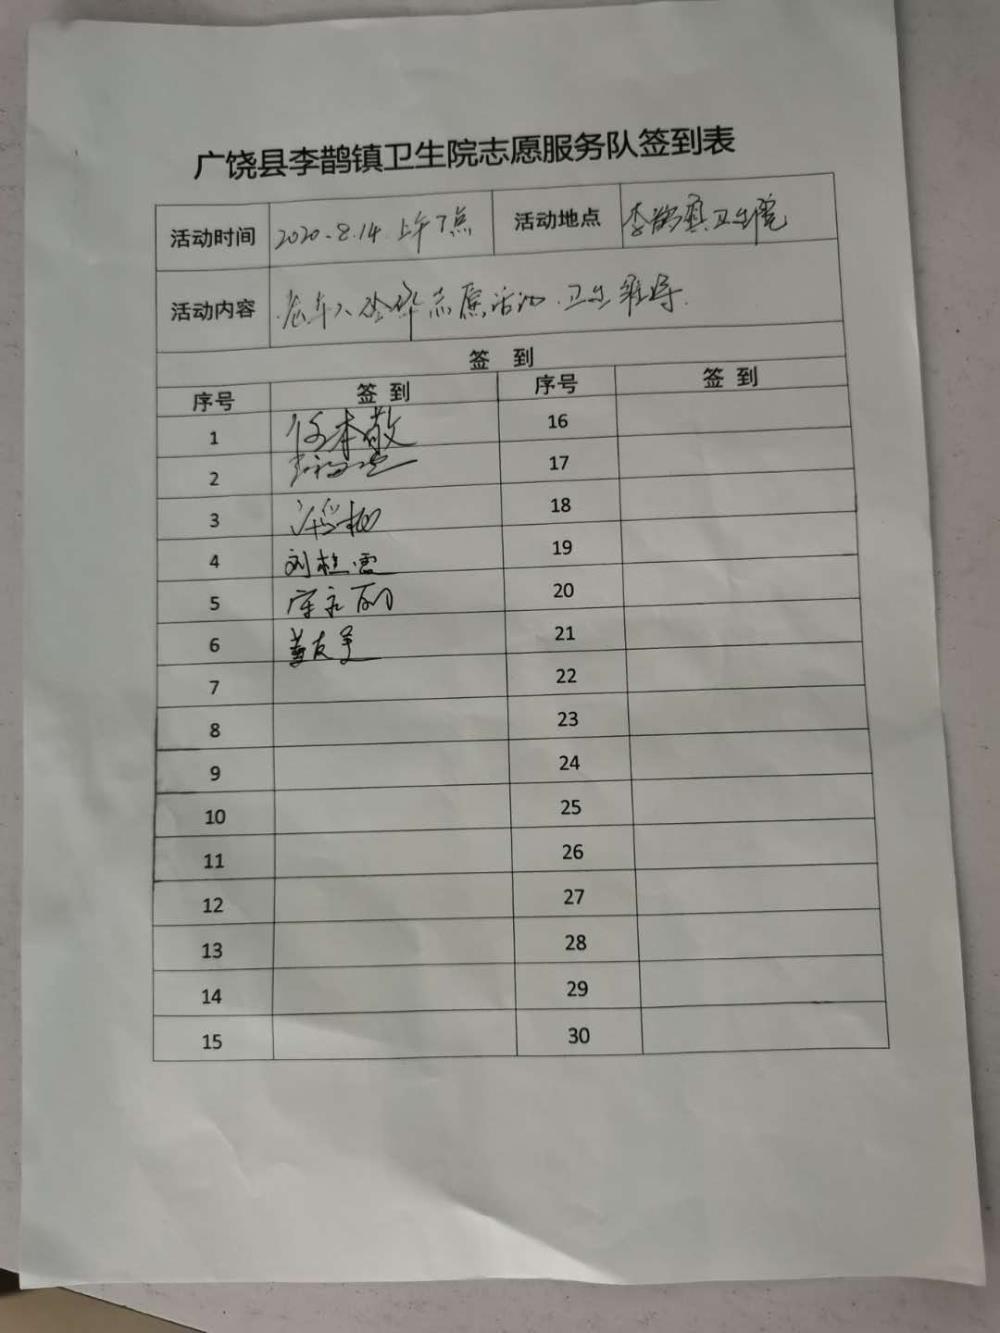 广饶县李鹊镇卫生院志愿服务队签到表
活动时间 2020.8.14 上午7点 活动地点 李鹊镇卫生院
活动内容 老年人查体志愿活动.卫生
签 到
序号 签 到 序号 签 到
1 任本敬 16
2 17
3 18
4 刘桂雪 19
5 20
6 21
7 22
8 23
9 24
10 25
11 26
12 27
13 28
14 29
15 30